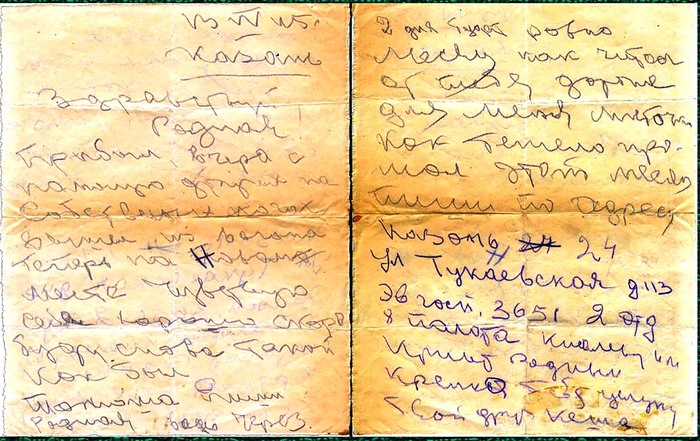 Казань
Здравствуй,
Родная!
Прибыл вчера с
помощью других на
собственных ногах
вышел из вагона
теперь на новом
месте чувствую
себя хорошо скоро
буду снова такой
как был
пиши
Родная через
2 дня будет ровно
месяц как читал
от тебя дорогие
для меня листочки
как тяжело про-
шел этот месяц
пиши по адресу
Казань 24
ул Тукаевская д. 113
Эв госп. 3651 2 отд
8 палата Киселеву И М
Привет родным
Крепко тебя целую
твой друг Кеша